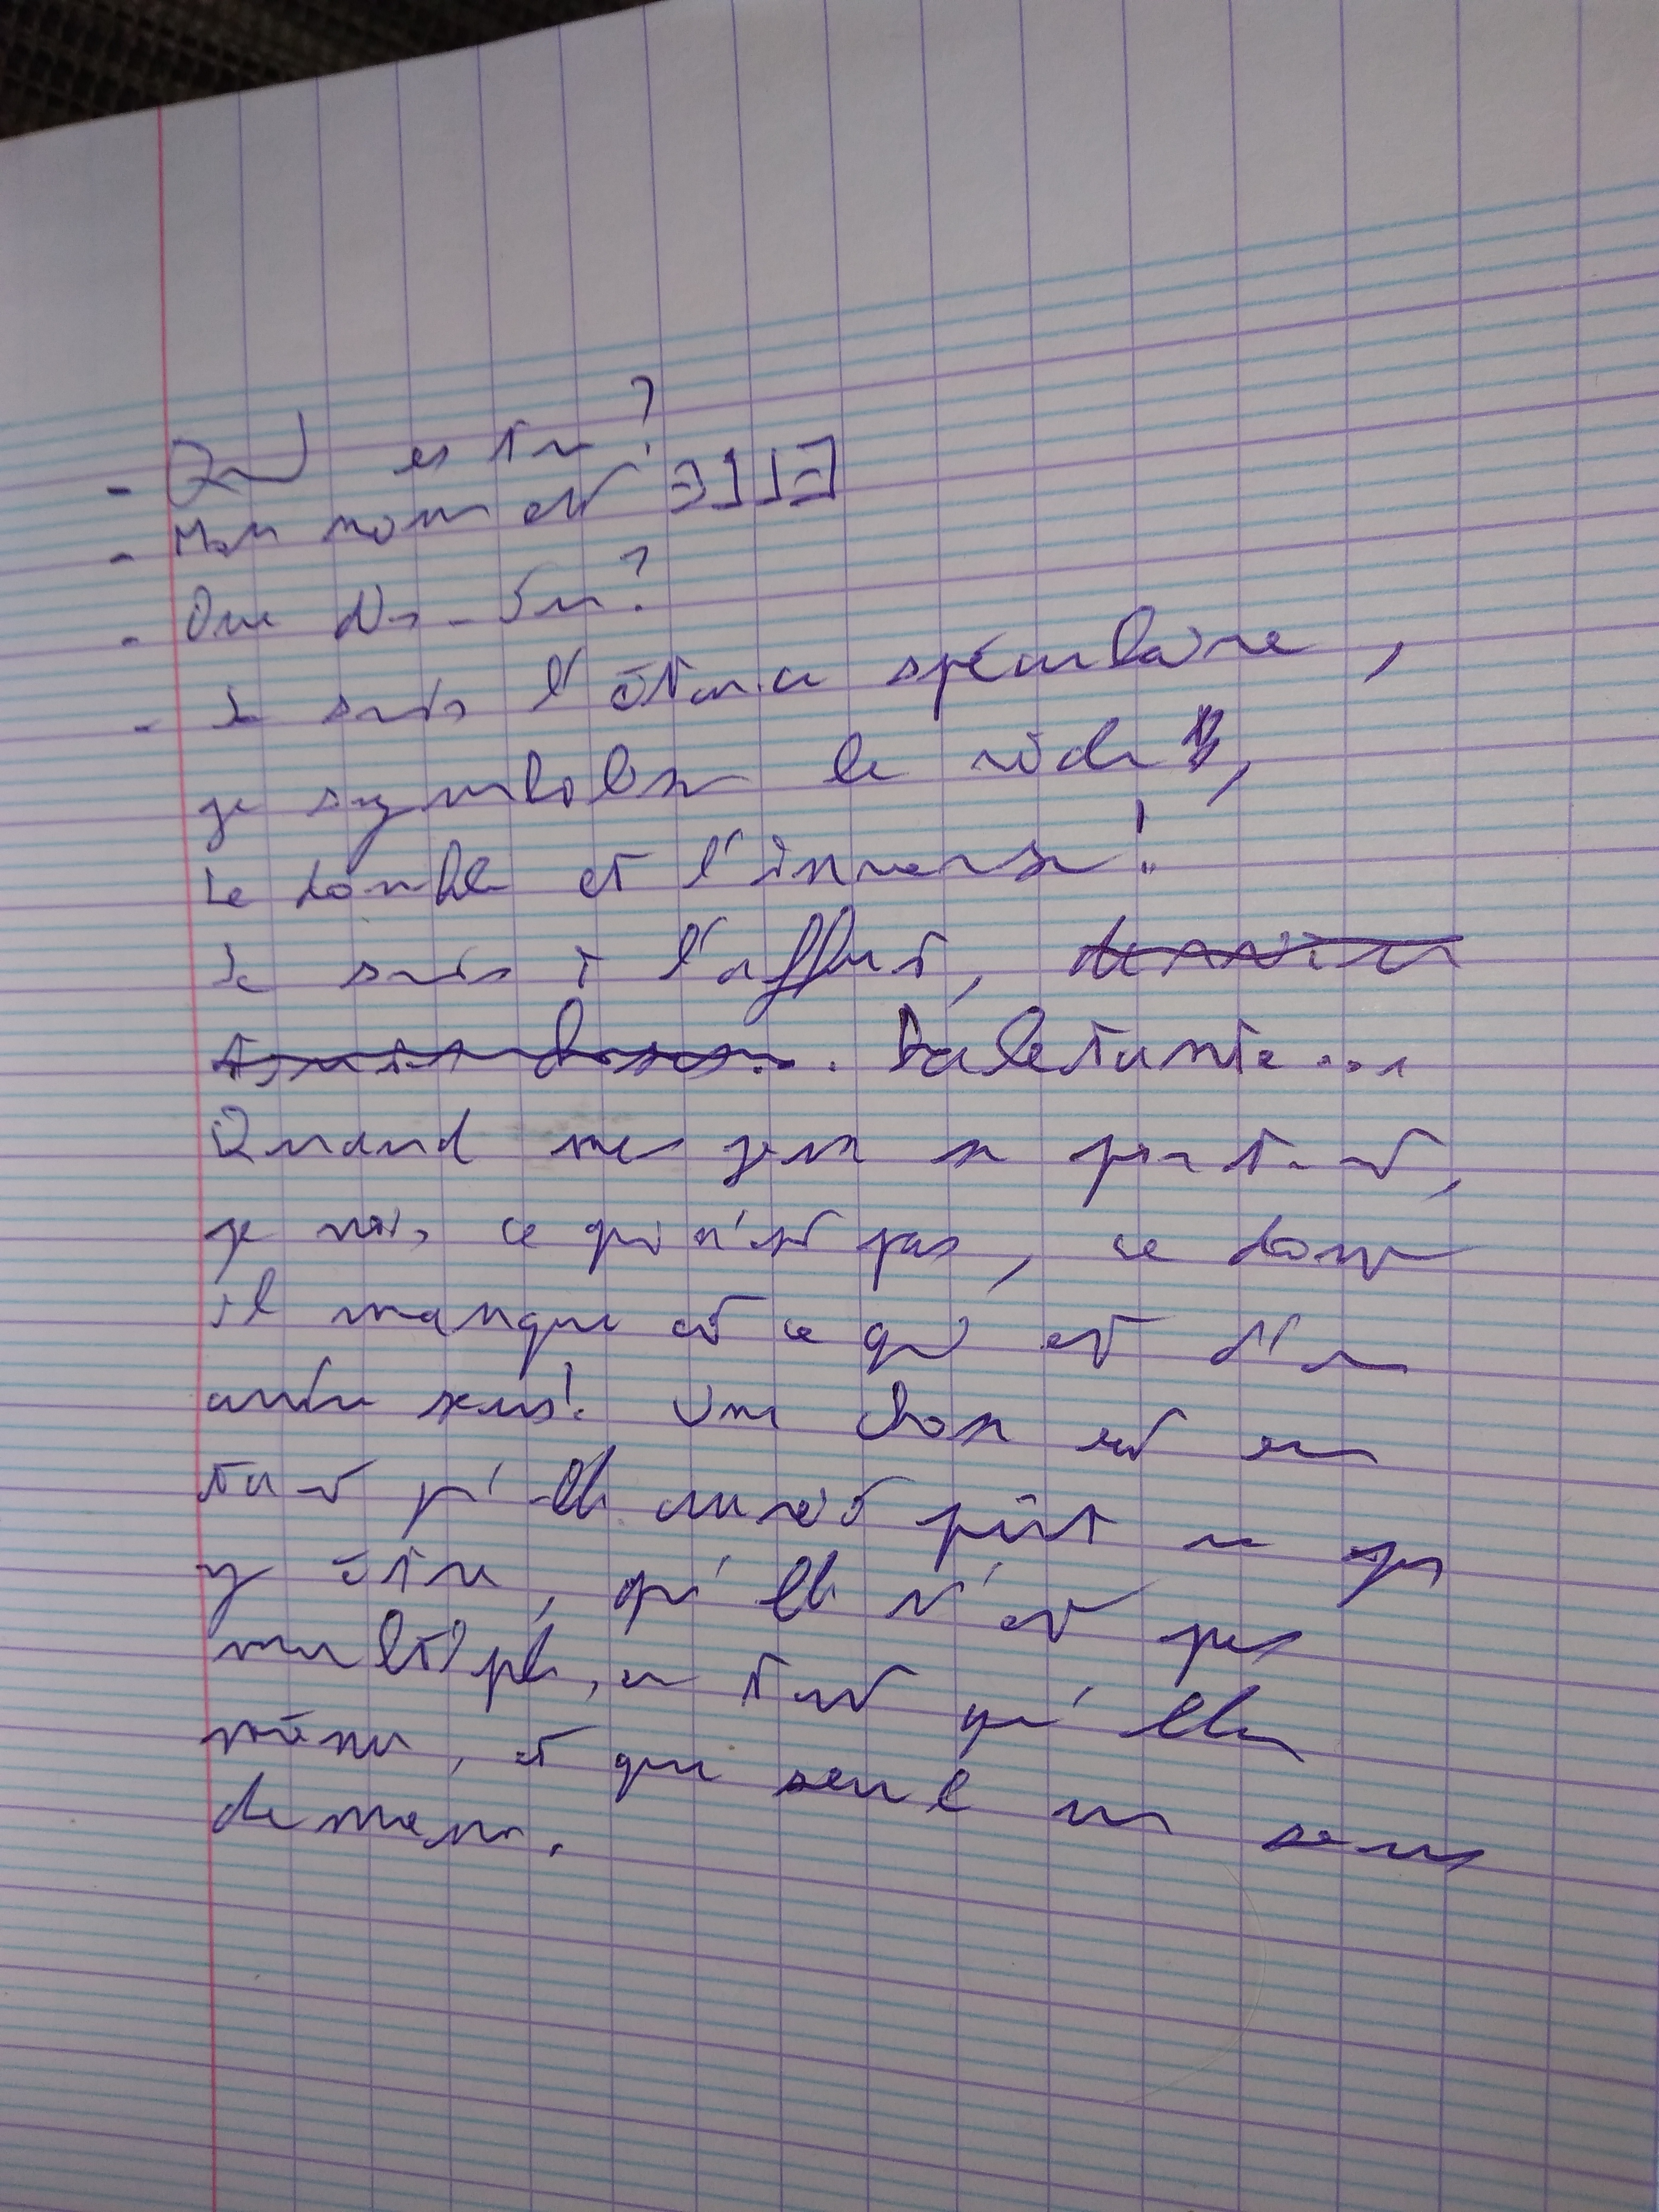 - Qui es tu?
- Mon nom est ƎLLE
- Que dis-tu?
- Je suis l'étance spéculaire,
je symbolise le vide,
Le double et l'inverse!
Je suis à l'affut, derrière
toutes choses... Haletante...
Quand mes yeux se portent,
je vois ce qui n'est pas, ce dont
il manque et ce qui est d'un
autre sens! Une chose est en
tant qu'elle aurait pût ne pas
y être, qu'elle n'est pas
multiple, en tant qu'elle
même, et que seul un sens
demeure.